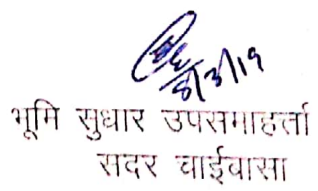 8/3/19
भूमि सुधार उपसमाहर्ता
सदर चाईबासा